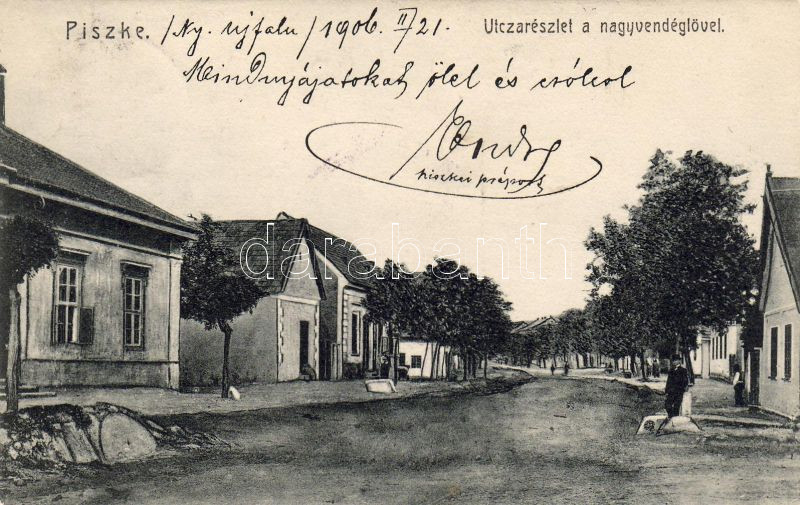 Piszke. /Ny. ujfalu/ 1906. II/21. Utczarészlet a nagyvendéglövel.
Mindnyájatokat ölel és csókol
darabanth